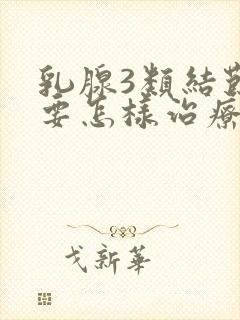 乳腺3類結
要怎樣治療
戈新華